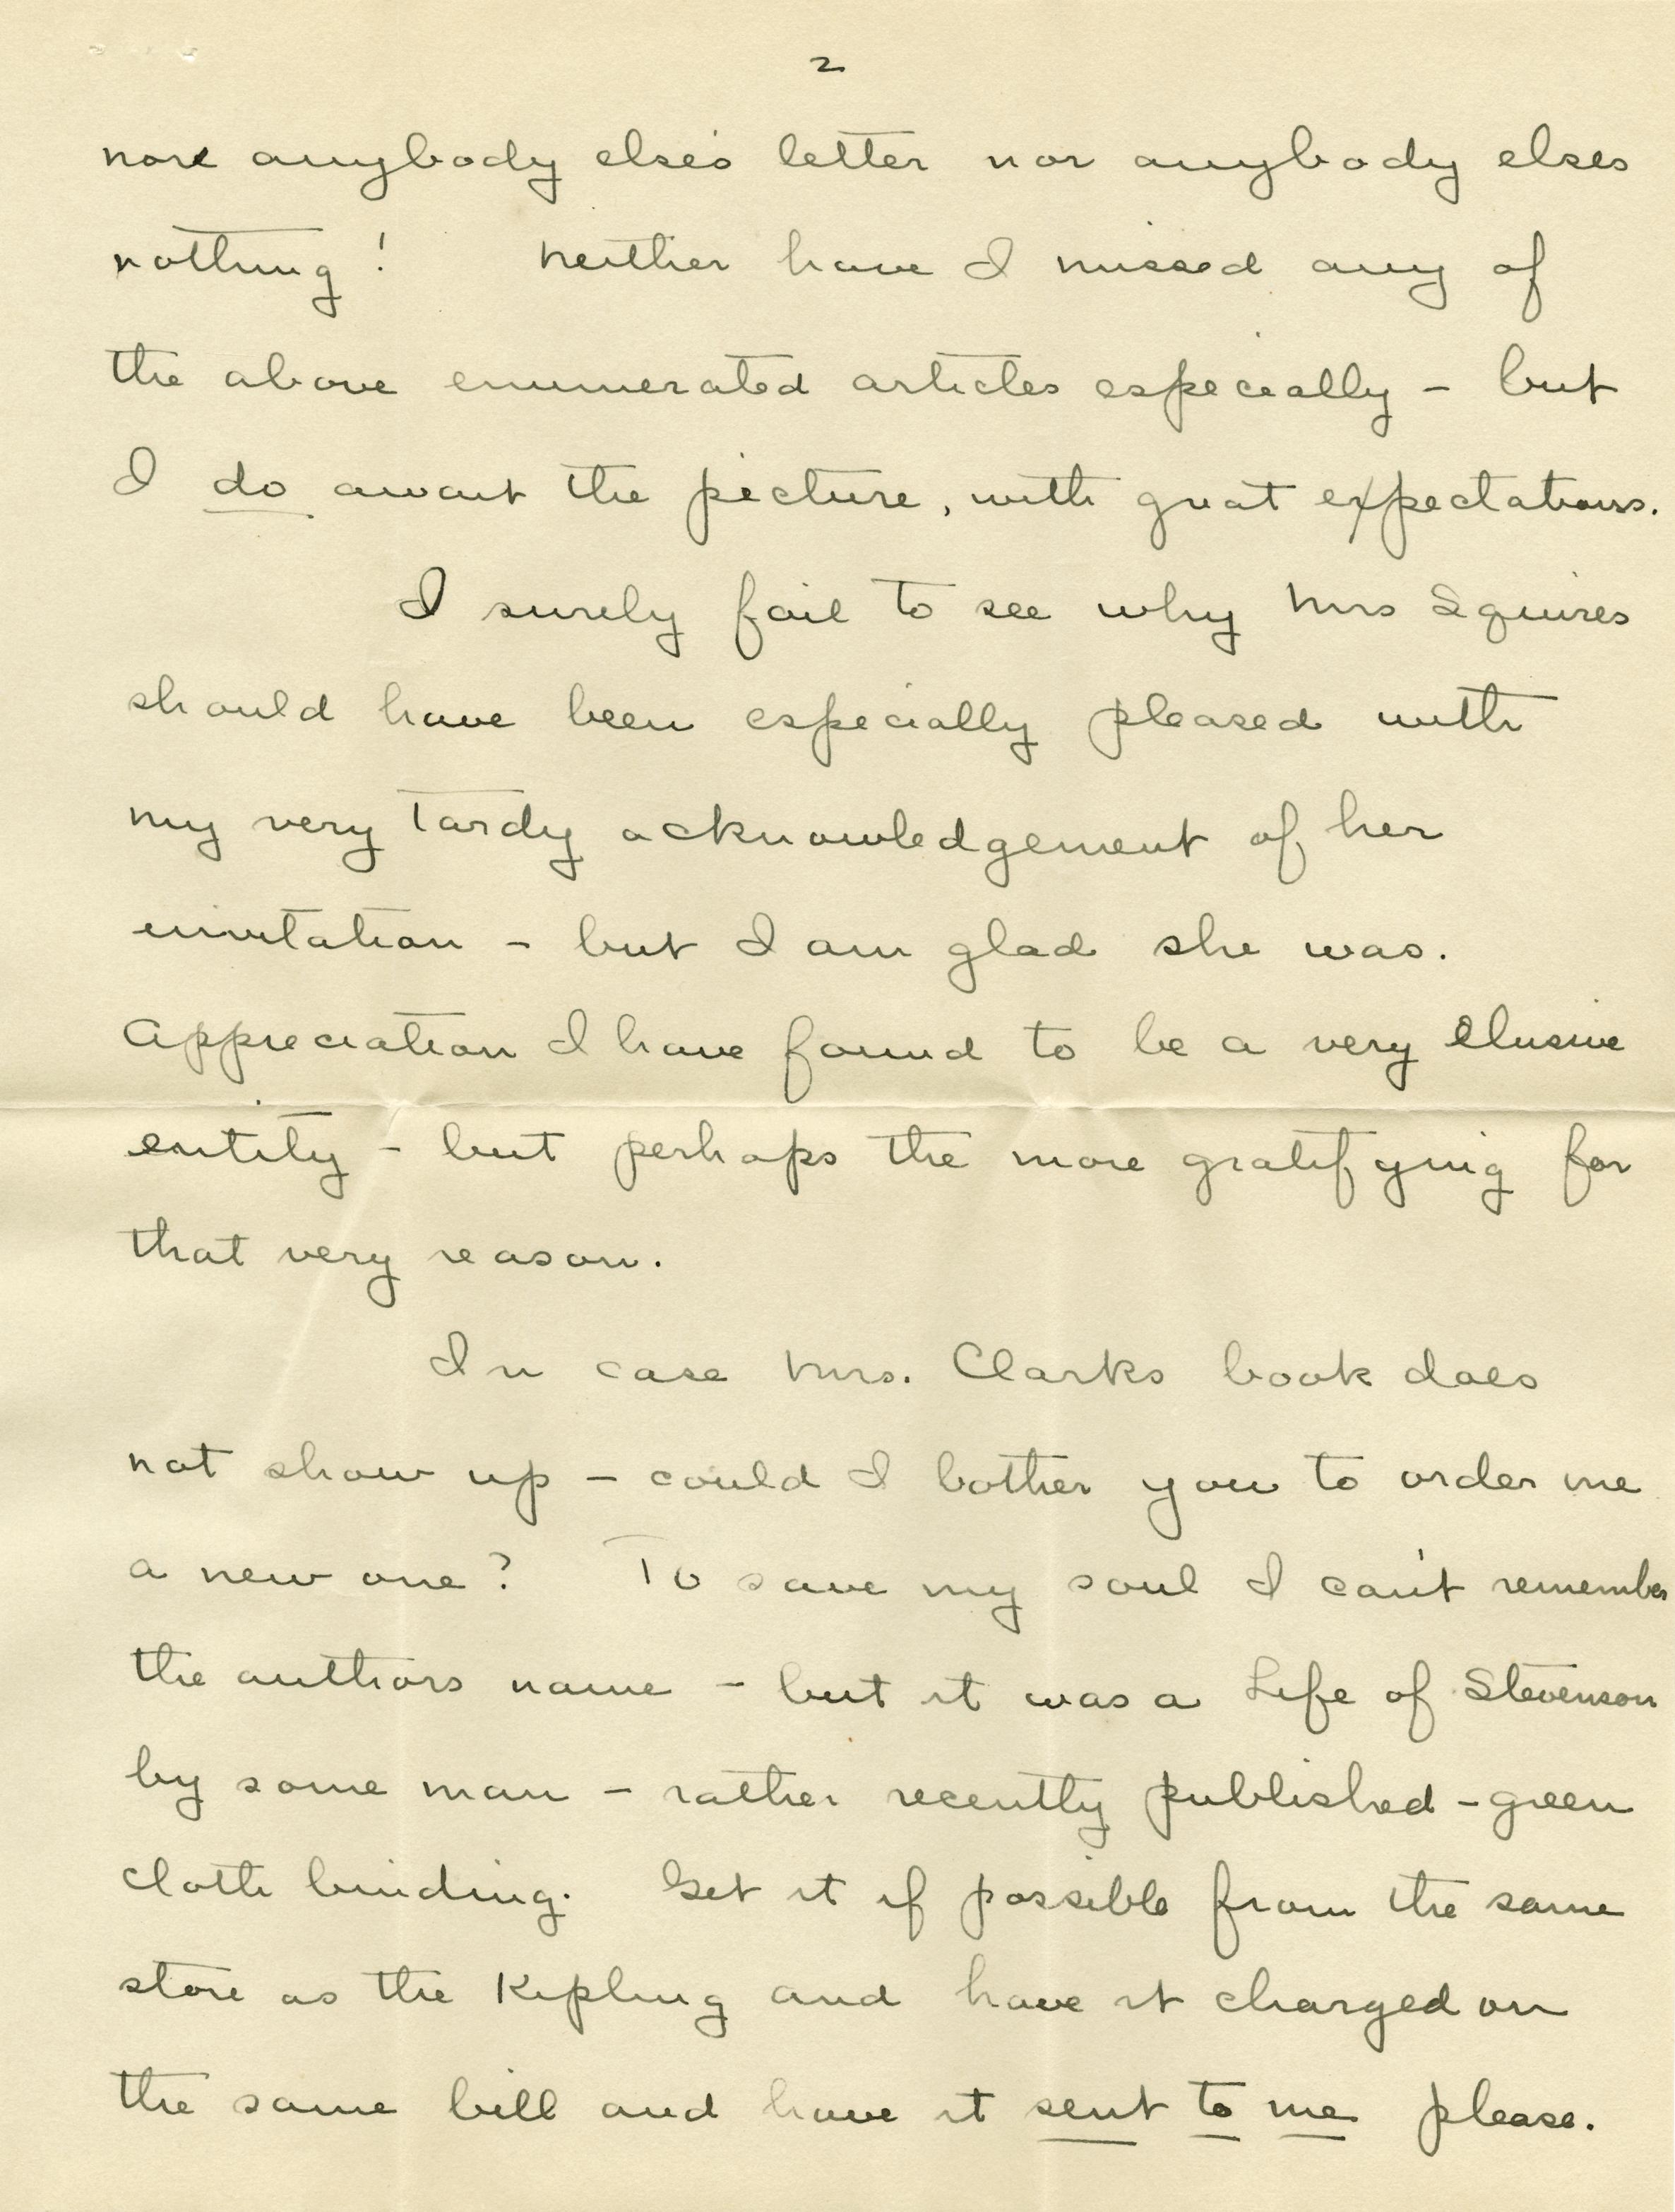 2
nore anybody else's letter nor anybody elses
nothing! Neither have I missed any of
the above enumerated articles especially - but
I do await the picture, with great expectations.
I surely fail to see why Mrs Squires
should have been especially pleased with
my very tardy acknowledgement of her
invitation - but I am glad she was.
Appreciation I have found to be a very elusive
entity - but perhaps the more gratifying for
that very reason.
In case Mrs. Clarks book does
not show up - could I bother you to order me
a new one? To save my soul I can't remember
the authors name - but it was a Life of Stevenson
by some man - rather recently published - green
cloth binding. Get it if possible from the same
store as the Kipling and have it charged on
the same bill and have it sent to me please.